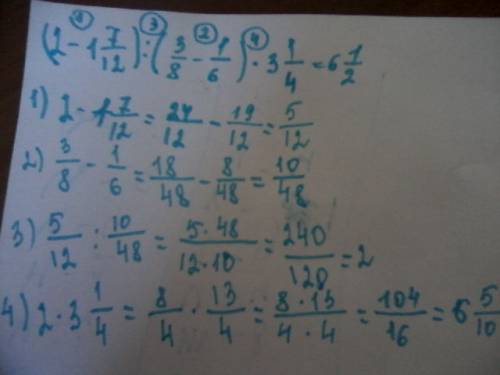 ① ③ ② ④
(2 - 1 7/12) : (3/8 - 1/6) · 3 1/4 = 6 1/2
1) 2 - 1 7/12 = 24/12 - 19/12 = 5/12
2) 3/8 - 1/6 = 18/48 - 8/48 = 10/48
3) 5/12 : 10/48 = 5·48/12·10 = 240/120 = 2
4) 2 · 3 1/4 = 8/4 · 13/4 = 8·13/4·4 = 104/16 = 6 5/10